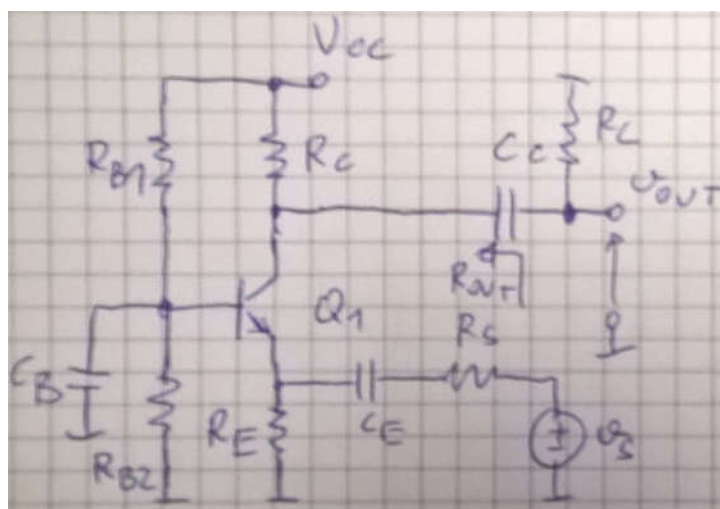 Vcc
RB1
Rc
Cc
RL
vOUT
ROUT
Q1
RS
CB
RB2
RE
CE
vs